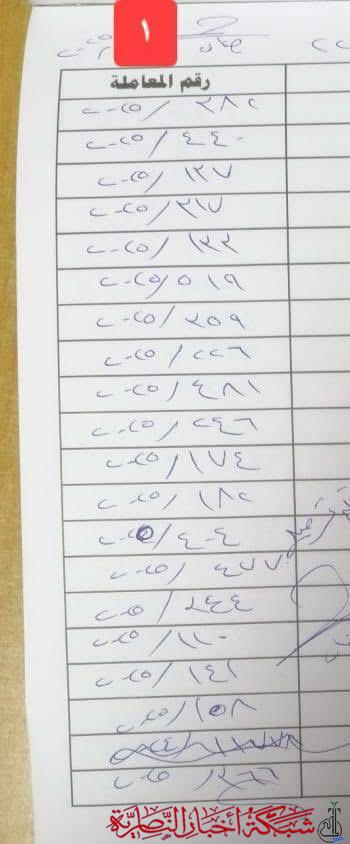 ١
رقم المعاملة
٢٨٢ / ٢٠٢٥
٤٤٠ / ٢٠٢٥
١٢٧ / ٢٠٢٥
٣١٧ / ٢٠٢٥
١٢٢ / ٢٠٢٥
٥١٩ / ٢٠٢٥
٢٥٩ / ٢٠٢٥
٢٢٦ / ٢٠٢٥
٤٨١ / ٢٠٢٥
٢٤٦ / ٢٠٢٥
١٧٤ / ٢٠٢٥
١٨٢ / ٢٠٢٥
٤٠٤ / ٢٠٢٥
٤٧٧ / ٢٠٢٥
٢٤٤ / ٢٠٢٥
١١٠ / ٢٠٢٥
١٤١ / ٢٠٢٥
١٥٨ / ٢٠٢٥
شبكة أخبار الناصرية